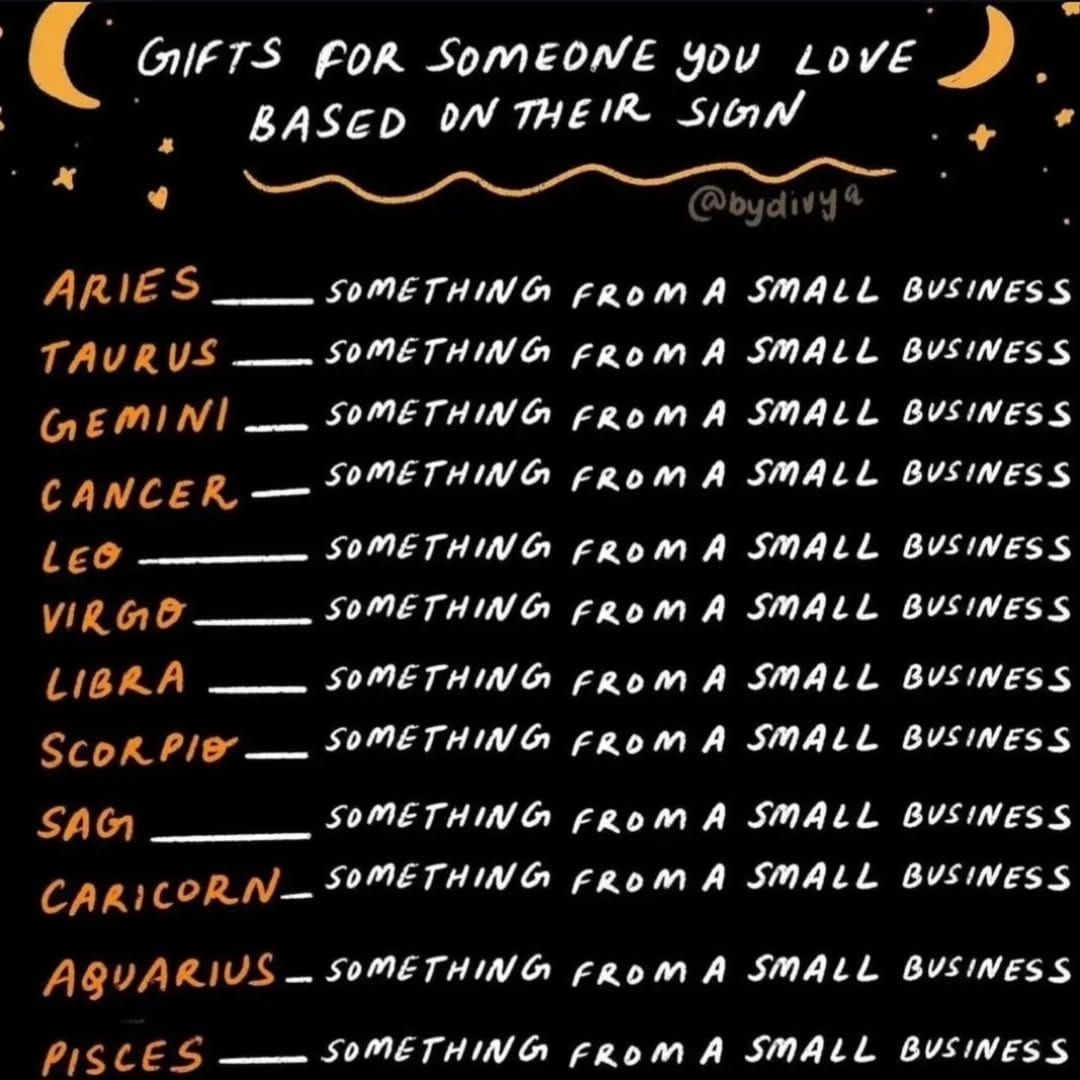 GIFTS FOR SOMEONE YOU LOVE
BASED ON THEIR SIGN
@bydivya
ARIES ____ SOMETHING FROM A SMALL BUSINESS
TAURUS ___ SOMETHING FROM A SMALL BUSINESS
GEMINI __ SOMETHING FROM A SMALL BUSINESS
CANCER __ SOMETHING FROM A SMALL BUSINESS
LEO ______ SOMETHING FROM A SMALL BUSINESS
VIRGO ____ SOMETHING FROM A SMALL BUSINESS
LIBRA ____ SOMETHING FROM A SMALL BUSINESS
SCORPIO __ SOMETHING FROM A SMALL BUSINESS
SAG ______ SOMETHING FROM A SMALL BUSINESS
CARICORN _ SOMETHING FROM A SMALL BUSINESS
AQUARIUS _ SOMETHING FROM A SMALL BUSINESS
PISCES ___ SOMETHING FROM A SMALL BUSINESS